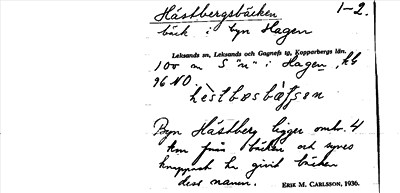 Hästbergsbäcken 1-2.
bäck i byn Hagen
Leksands sn, Leksands och Gagnefs tg, Kopparbergs län.
100 m S "n" i Hagen, kb
96 NO.
Byn Hästberg ligger omkr. 4
km från bäcken och synes
knappast ha givit bäcken
dess namn. ERIK M. CARLSSON, 1930.